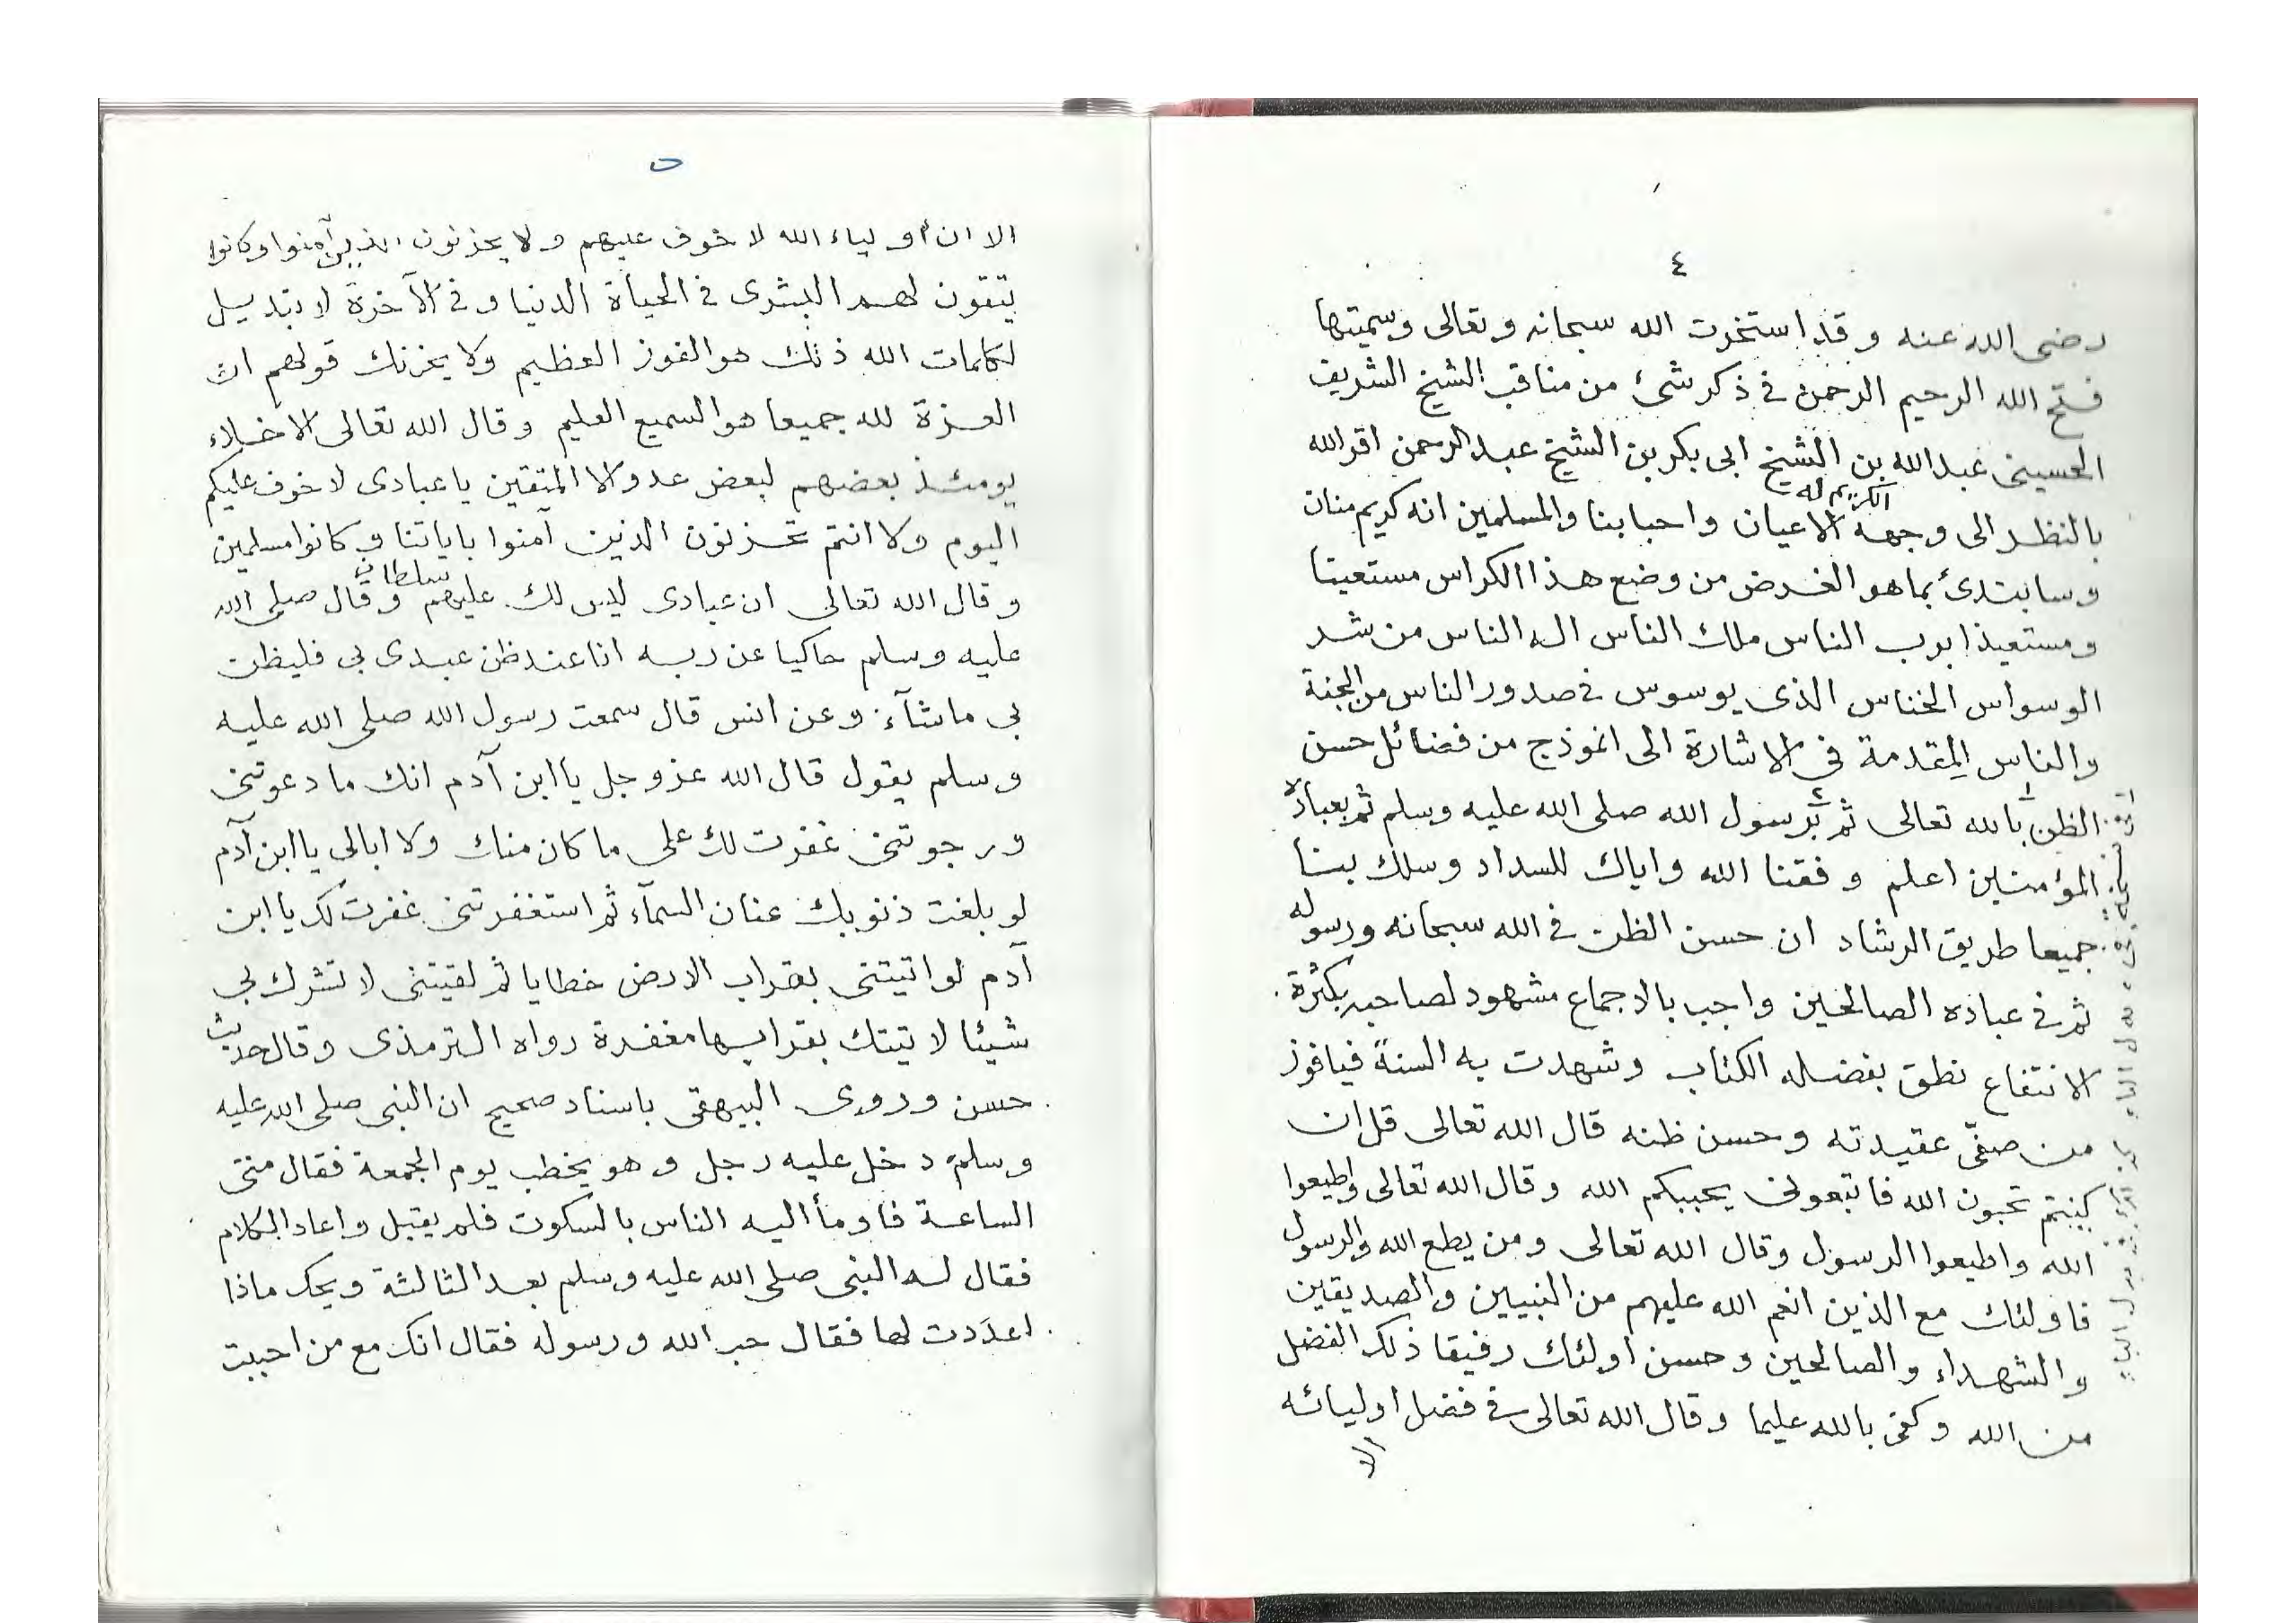 ٤
رضى الله عنه وقد استخرت الله سبحانه وتعالى وسميتها
فتح الله الرحيم الرحمن في ذكر شئ من مناقب الشيخ الشريف
الحسينى عبد الله بن الشيخ ابى بكر بن الشيخ عبد الرحمن اقر الله
بالنظر الى وجهه الكريم له الاعيان واحبابنا والمسلمين انه كريم منان
وسابتدئ بما هو الغرض من وضع هذا الكراس مستعينا
ومستعيذا برب الناس ملك الناس اله الناس من شر
الوسواس الخناس الذى يوسوس في صدور الناس من الجنة
والناس المقدمة في الاشارة الى انموذج من فضائل حسن
الظن بالله تعالى ثم برسول الله صلى الله عليه وسلم ثم بعباده
المؤمنين اعلم وفقنا الله واياك للسداد وسلك بنا
جميعا طريق الرشاد ان حسن الظن في الله سبحانه ورسوله
ثم في عباده الصالحين واجب بالاجماع مشهود لصاحبه بكثرة
الانتفاع نطق بفضله الكتاب وشهدت به السنة فيا فوز
من صفّى عقيدته وحسن ظنه قال الله تعالى قل ان
كنتم تحبون الله فاتبعونى يحببكم الله وقال الله تعالى واطيعوا
الله واطيعوا الرسول وقال الله تعالى ومن يطع الله والرسول
فاولئك مع الذين انعم الله عليهم من النبيين والصديقين
والشهداء والصالحين وحسن اولئك رفيقا ذلك الفضل
من الله وكفى بالله عليما وقال الله تعالى في فضل اوليائه
الا
٥
الا ان أولياء الله لا خوف عليهم ولا يحزنون الذين آمنوا وكانوا
يتقون لهم البشرى في الحياة الدنيا وفي الآخرة لا تبديل
لكلمات الله ذلك هو الفوز العظيم ولا يحزنك قولهم ان
العزة لله جميعا هو السميع العليم وقال الله تعالى الاخلاء
يومئذ بعضهم لبعض عدو الا المتقين يا عبادى لا خوف عليكم
اليوم ولا انتم تحزنون الذين آمنوا باياتنا وكانوا مسلمين
وقال الله تعالى ان عبادى ليس لك عليهم سلطان وقال صلى الله
عليه وسلم حاكيا عن ربه انا عند ظن عبدى بي فليظن
بي ما شآء وعن انس قال سمعت رسول الله صلى الله عليه
وسلم يقول قال الله عز وجل يا ابن آدم انك ما دعوتنى
ورجوتنى غفرت لك على ما كان منك ولا ابالى يا ابن آدم
لو بلغت ذنوبك عنان السمآء ثم استغفرتنى غفرت لك يا ابن
آدم لو اتيتنى بقراب الارض خطايا ثم لقيتنى لا تشرك بي
شيئا لا تيتك بقرابها مغفرة رواه الترمذى وقال حديث
حسن وروى البيهقى باسناد صحيح ان النبى صلى الله عليه
وسلم دخل عليه رجل وهو يخطب يوم الجمعة فقال متى
الساعة فاومأ اليه الناس بالسكوت فلم يقبل واعاد الكلام
فقال له النبى صلى الله عليه وسلم بعد الثالثة ويحك ماذا
اعددت لها فقال حب الله ورسوله فقال انك مع من احببت